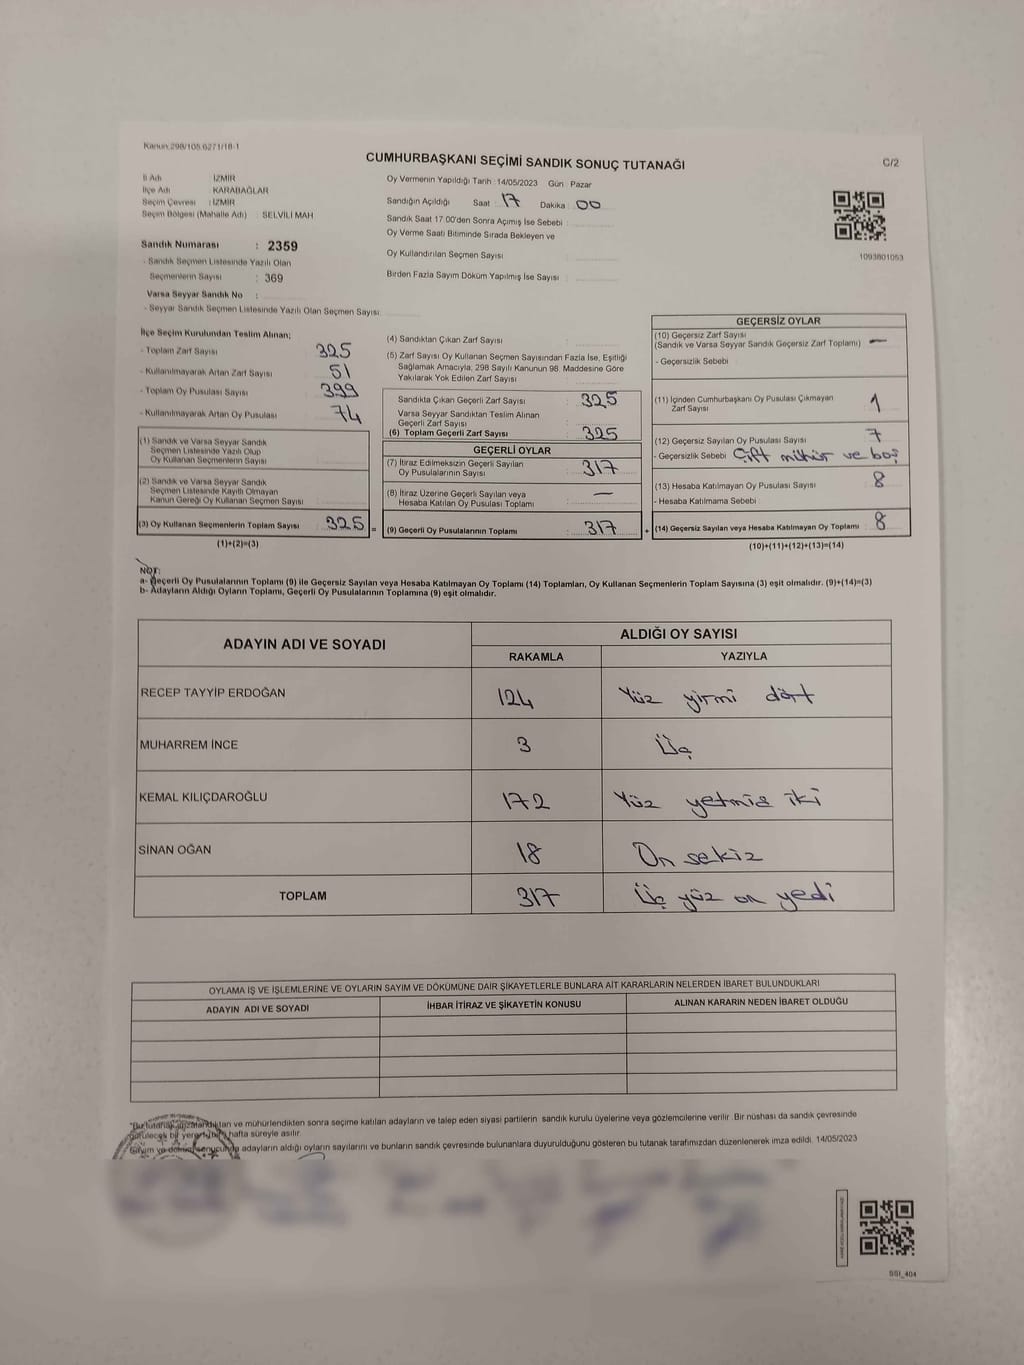 Kanun 298/105.6271/18-1
CUMHURBAŞKANI SEÇİMİ SANDIK SONUÇ TUTANAĞI
C/2
İl Adı : İZMİR
İlçe Adı : KARABAĞLAR
Seçim Çevresi : İZMİR
Seçim Bölgesi (Mahalle Adı) : SELVİLİ MAH
Sandık Numarası : 2359
- Sandık Seçmen Listesinde Yazılı Olan
Seçmenlerin Sayısı : 369
Varsa Seyyar Sandık No :
- Seyyar Sandık Seçmen Listesinde Yazılı Olan Seçmen Sayısı:
Oy Vermenin Yapıldığı Tarih : 14/05/2023 Gün : Pazar
Sandığın Açıldığı Saat : 17 Dakika : 00
Sandık Saat 17.00'den Sonra Açımış İse Sebebi :
Oy Verme Saati Bitiminde Sırada Bekleyen ve
Oy Kullandırılan Seçmen Sayısı
Birden Fazla Sayım Döküm Yapılmış İse Sayısı :
1093801053
İlçe Seçim Kurulundan Teslim Alınan;
- Toplam Zarf Sayısı 325
- Kullanılmayarak Artan Zarf Sayısı : 51
- Toplam Oy Pusulası Sayısı : 399
- Kullanılmayarak Artan Oy Pusulası : 74
(1) Sandık ve Varsa Seyyar Sandık
Seçmen Listesinde Yazılı Olup
Oy Kullanan Seçmenlerin Sayısı :
(2) Sandık ve Varsa Seyyar Sandık
Seçmen Listesinde Kayıtlı Olmayan
Kanun Gereği Oy Kullanan Seçmen Sayısı :
(3) Oy Kullanan Seçmenlerin Toplam Sayısı : 325 =
(1)+(2)=(3)
(4) Sandıktan Çıkan Zarf Sayısı :
(5) Zarf Sayısı Oy Kullanan Seçmen Sayısından Fazla İse, Eşitliği
Sağlamak Amacıyla, 298 Sayılı Kanunun 98. Maddesine Göre
Yakılarak Yok Edilen Zarf Sayısı :
Sandıkta Çıkan Geçerli Zarf Sayısı : 325
Varsa Seyyar Sandıktan Teslim Alınan
Geçerli Zarf Sayısı :
(6) Toplam Geçerli Zarf Sayısı : 325
GEÇERLİ OYLAR
(7) İtiraz Edilmeksizin Geçerli Sayılan
Oy Pusulasının Sayısı : 317
(8) İtiraz Üzerine Geçerli Sayılan veya
Hesaba Katılan Oy Pusulası Toplamı : —
(9) Geçerli Oy Pusulalarının Toplamı : 317 +
GEÇERSİZ OYLAR
(10) Geçersiz Zarf Sayısı
(Sandık ve Varsa Seyyar Sandık Geçersiz Zarf Toplamı) : —
- Geçersizlik Sebebi :
(11) İçinden Cumhurbaşkanı Oy Pusulası Çıkmayan
Zarf Sayısı : 1
(12) Geçersiz Sayılan Oy Pusulası Sayısı : 7
- Geçersizlik Sebebi : Çift mühür ve boş
(13) Hesaba Katılmayan Oy Pusulası Sayısı : 8
- Hesaba Katılmama Sebebi :
(14) Geçersiz Sayılan veya Hesaba Katılmayan Oy Toplamı : 8
(10)+(11)+(12)+(13)=(14)
NOT:
a- Geçerli Oy Pusulalarının Toplamı (9) ile Geçersiz Sayılan veya Hesaba Katılmayan Oy Toplamı (14) Toplamları, Oy Kullanan Seçmenlerin Toplam Sayısına (3) eşit olmalıdır. (9)+(14)=(3)
b- Adayların Aldığı Oyların Toplamı, Geçerli Oy Pusulalarının Toplamına (9) eşit olmalıdır.
ADAYIN ADI VE SOYADI
ALDIĞI OY SAYISI
RAKAMLA YAZIYLA
RECEP TAYYİP ERDOĞAN 124 Yüz yirmi dört
MUHARREM İNCE 3 Üç
KEMAL KILIÇDAROĞLU 172 Yüz yetmiş iki
SİNAN OĞAN 18 On sekiz
TOPLAM 317 Üç yüz on yedi
OYLAMA İŞ VE İŞLEMLERİNE VE OYLARIN SAYIM VE DÖKÜMÜNE DAİR ŞİKAYETLERLE BUNLARA AİT KARARLARIN NELERDEN İBARET BULUNDUKLARI
ADAYIN ADI VE SOYADI İHBAR İTİRAZ VE ŞİKAYETİN KONUSU ALINAN KARARIN NEDEN İBARET OLDUĞU
"Bu tutanak imzalandıktan ve mühürlendikten sonra seçime katılan adayların ve talep eden siyasi partilerin sandık kurulu üyelerine veya gözlemcilerine verilir. Bir nüshası da sandık çevresinde
görülecek bir yere bir hafta süreyle asılır.
Sayım ve döküm sonucunda adayların aldığı oyların sayılarını ve bunların sandık çevresinde bulunanlara duyurulduğunu gösteren bu tutanak tarafımızdan düzenlenerek imza edildi. 14/05/2023
SSI_404